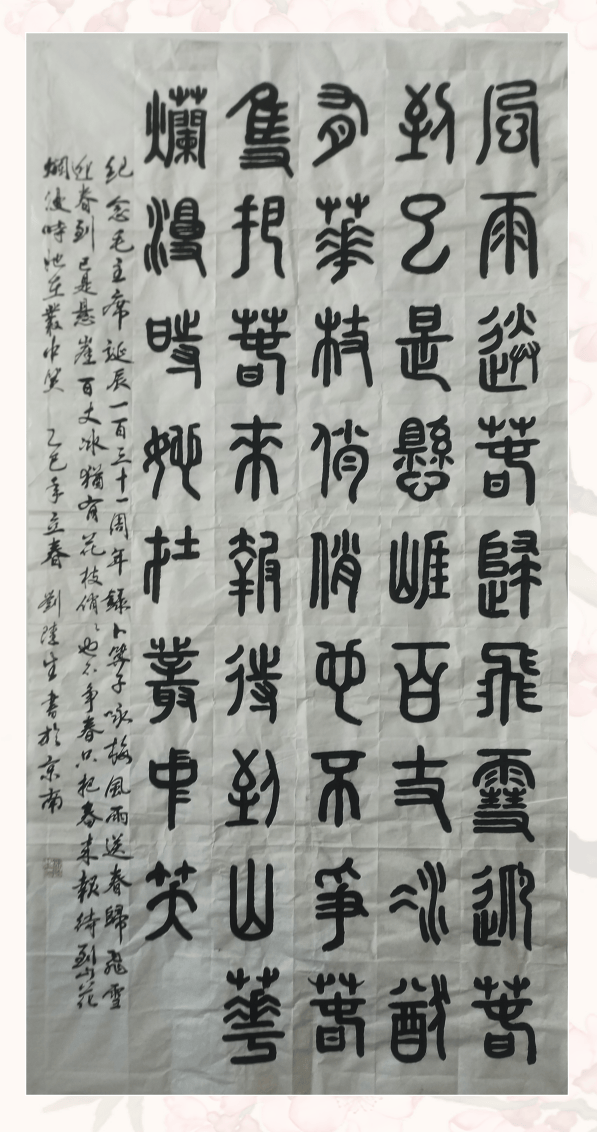 風雨送春歸飛雪迎春
到已是懸崖百丈冰猶
有華枝俏俏也不爭春
隻把春來報待到山華
爛漫時她在叢中笑
紀念毛主席誕辰一百三十一周年錄卜算子咏梅風雨送春歸飛雪
迎春到已是懸崖百丈冰猶有花枝俏々也不爭春只把春来報待到山花
爛漫時她在叢中笑 乙巳年立春 劉生書於京南